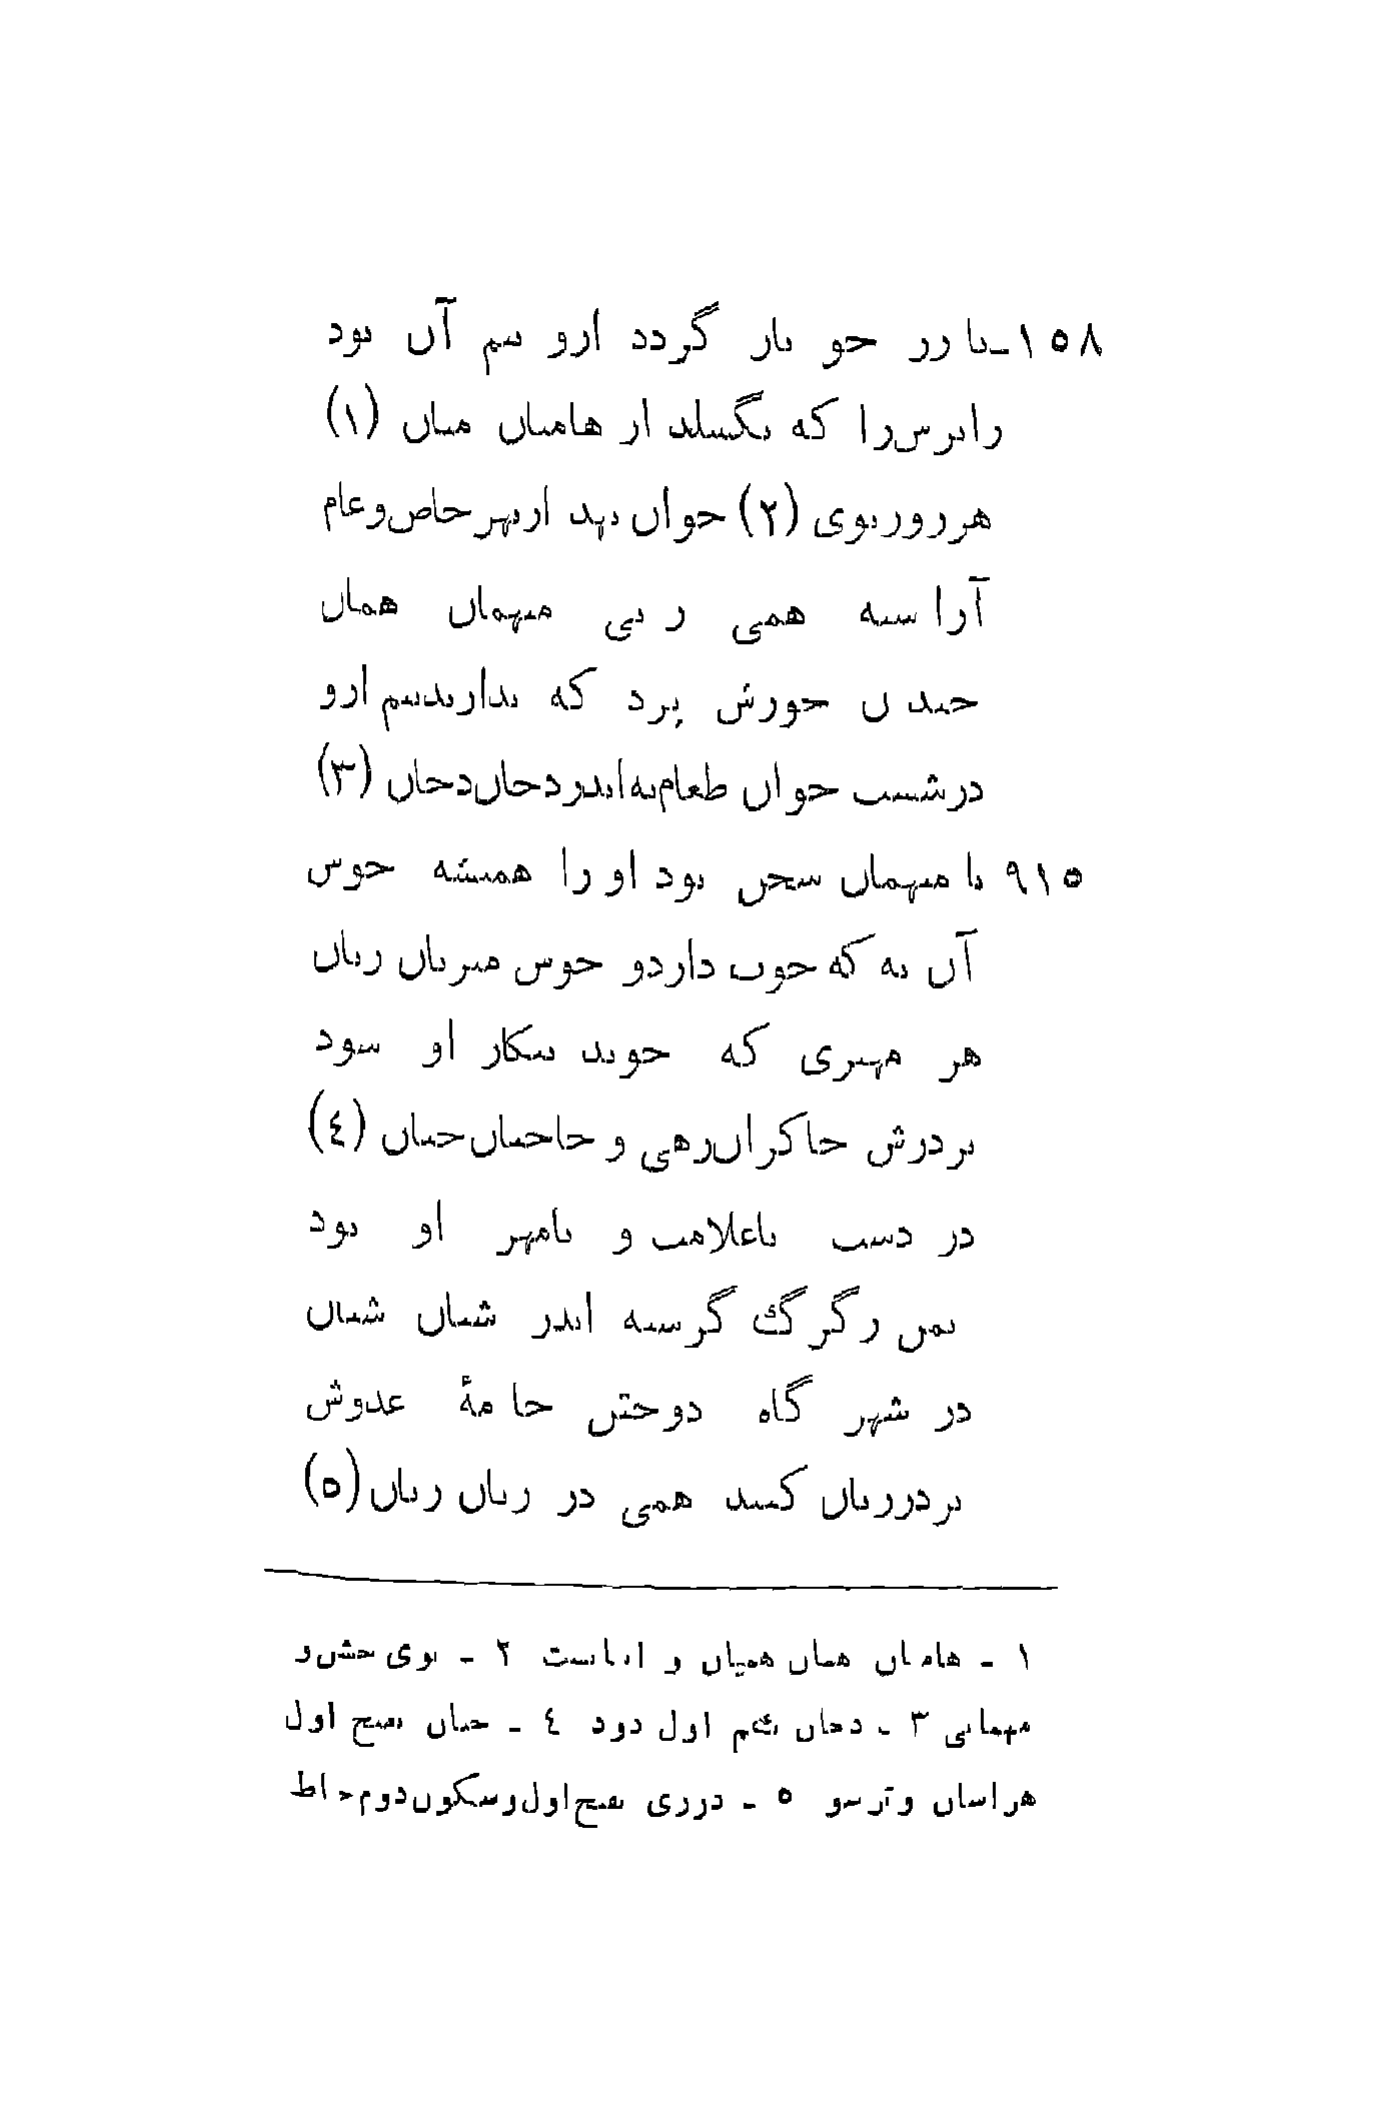 ۱۵۸ـ با زر چو باز گردد ازو بیم آن بود
زایرش را که بگسلد از هامیان میان (۱)
هر روز بوی (۲) خوان نهد از بهر خاص و عام
آراسته همی ز پی میهمان همان
چندان خورش برد که ندارند بیم ازو
در شست خوان طعام به اندر دخان دخان (۳)
۹۱۵ با میهمان سخن بود او را همیشه خوش
آن به که خوب دارد و خوش میزبان زبان
هر مهتری که جوید پیکار او شود
بر درش چاکران رهی و حاجبان جبان (٤)
در دست با علامت و با مهر او بود
ایمن ز گرگ گرسنه اندر شبان شبان
در شهر گاه دوختن جامهٔ عدوش
بر درزیان کنند همی در زیان زیان (۵)
۱ ـ هامیان همان همیان و انبانست ۲ ـ بوی جشن و
مهمانی ۳ ـ دخان بضم اول دود ٤ ـ جبان بفتح اول
هراسان و ترسو ۵ ـ درزی بفتح اول و سکون دوم خیاط